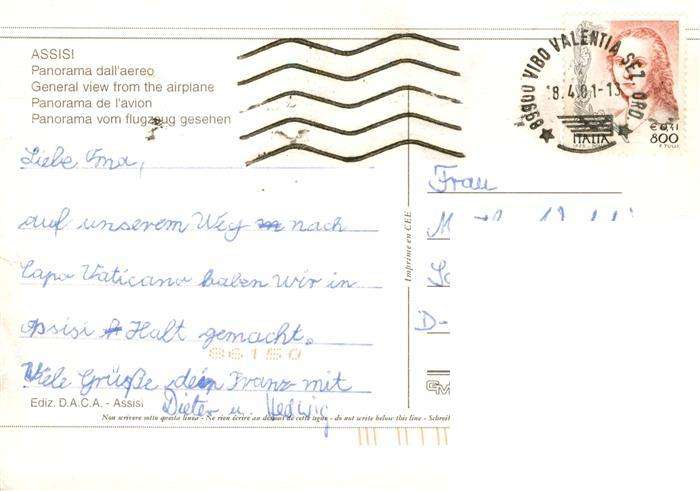 ASSISI
Panorama dall'aereo
General view from the airplane
Panorama de l'avion
Panorama vom flugzeug gesehen
89900 VIBO VALENTIA SEZ. ORD.
8.4.01-13
ITALIA
€ 0,41
800
Liebe Oma,
auf unserem Weg nach
Capo Vaticano haben wir in
Assisi Halt gemacht.
Viele Grüße dein Franz mit
Dieter u. Hedwig
86150
Ediz. D.A.C.A. - Assisi
Non scrivere sotto questa linea - Ne rien écrire au dessous de cette ligne - do not write below this line - Schreib
Imprime en CEE
Frau
D-